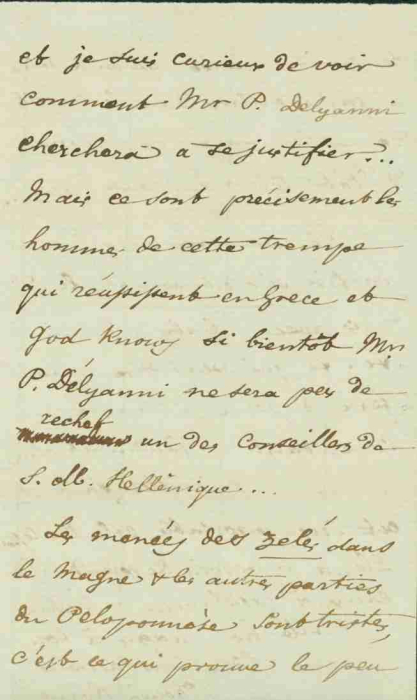 et je suis curieux de voir
comment Mr P. Delyanni
cherchera a se justifier...
Mais ce sont précisement les
hommes de cette trempe
qui réussissent en Grece et
God Knows si bientôt Mr
P. Délyanni ne sera pas de
rechef
un des Conseillers de
S. M. Hellénique...
Les menées des zelés dans
le Magne & les autres parties
du Peloponnèse sont tristes,
c'est ce qui prouve le peu